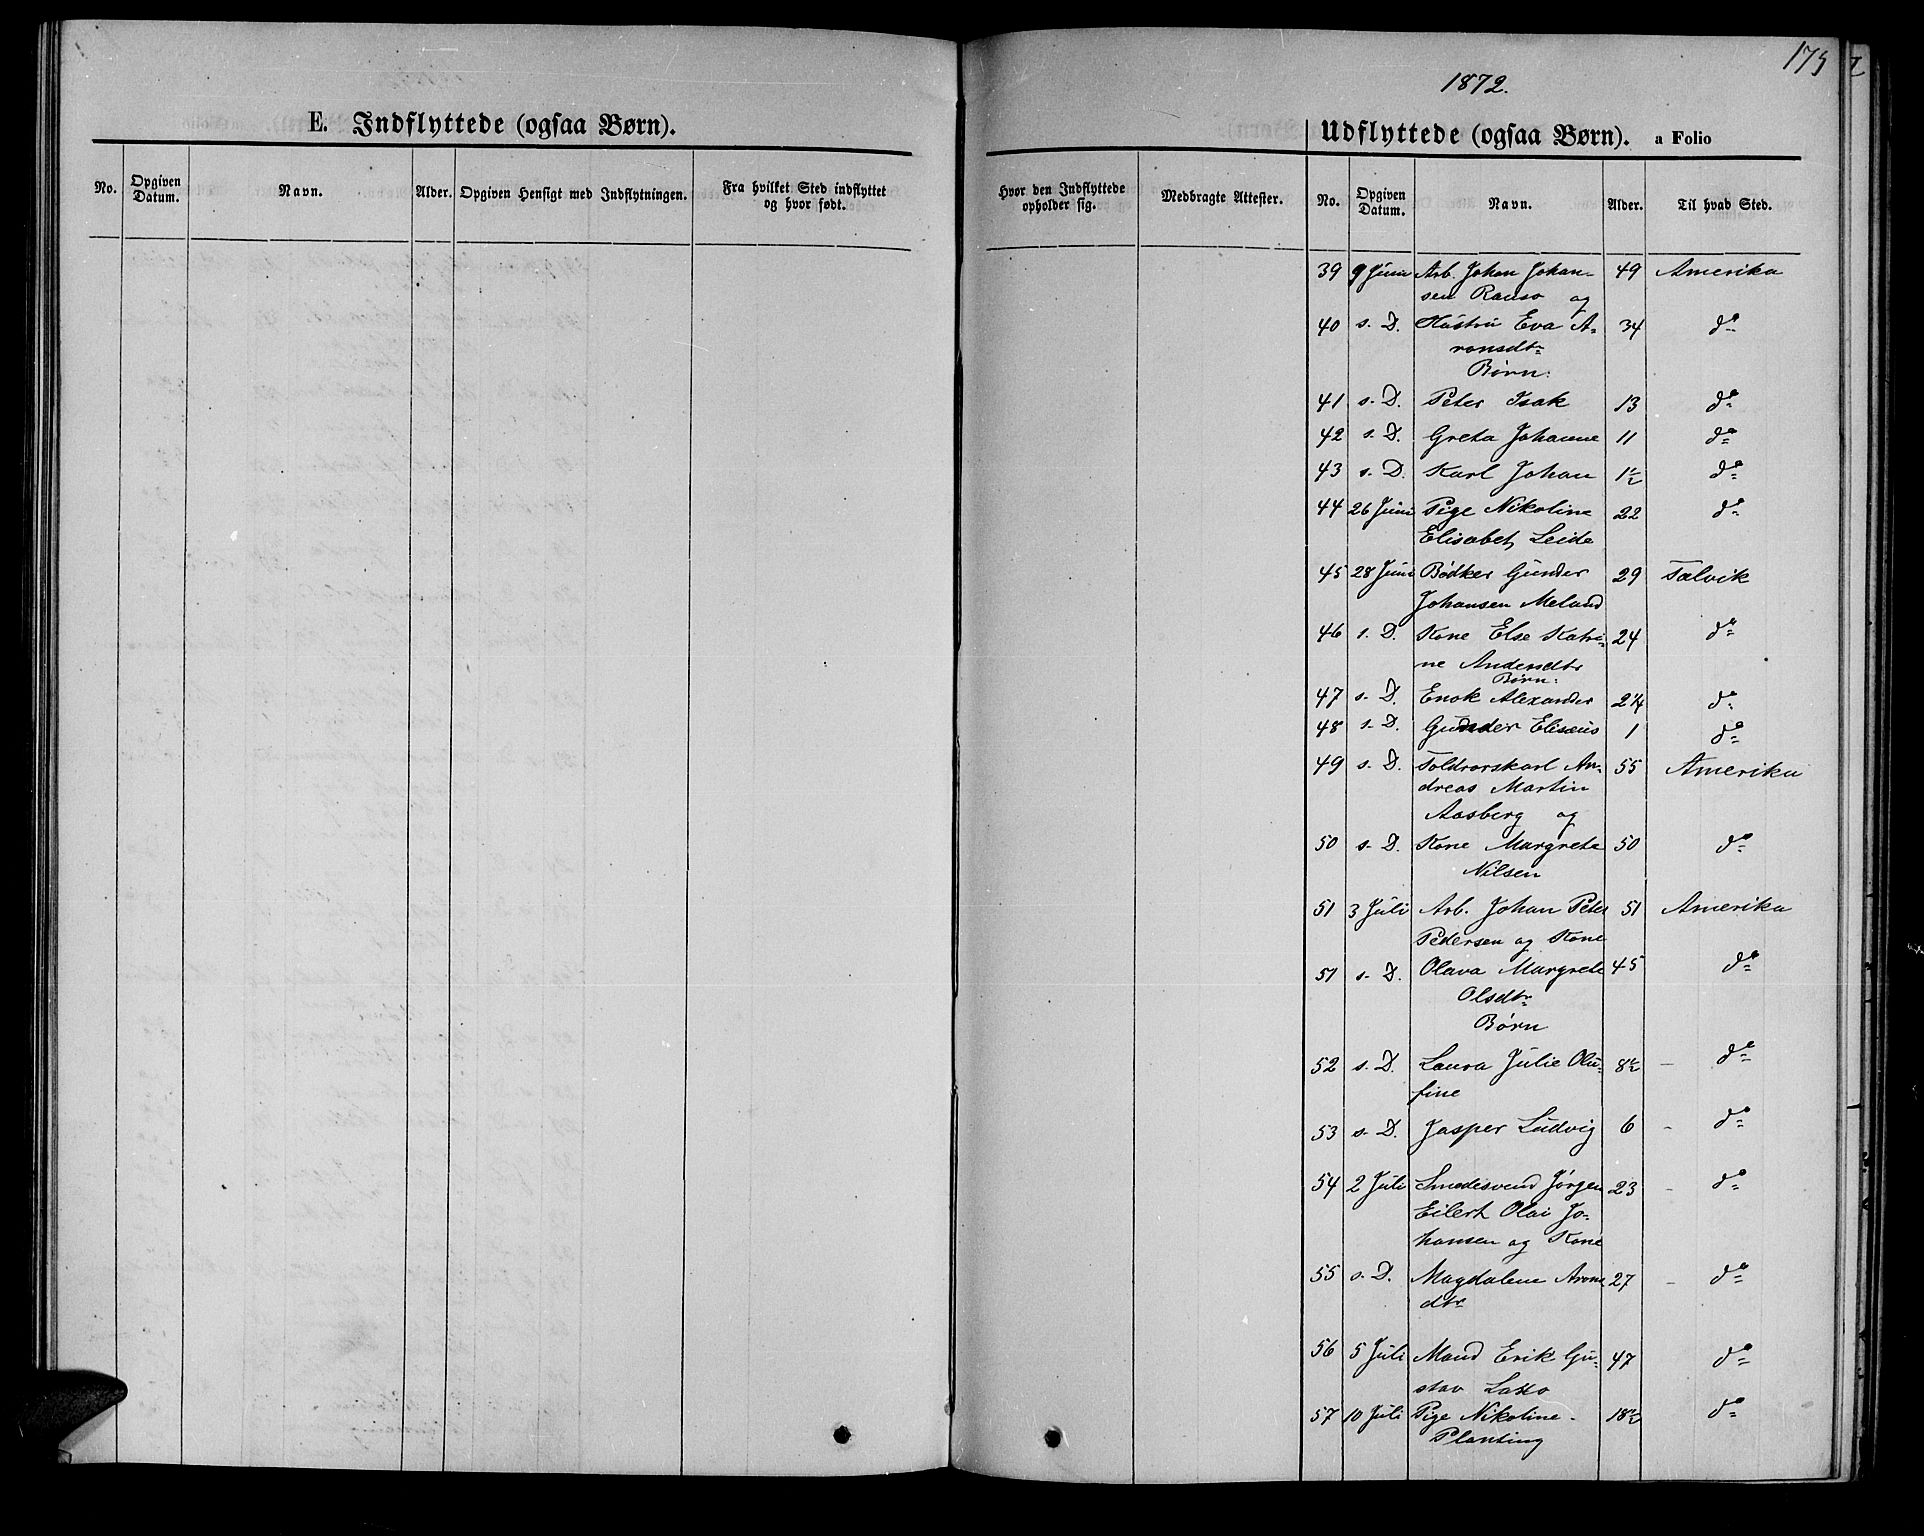 175
1872.
E. Indflyttede (ogsaa Børn).
Udflyttede (ogsaa Børn). a Folio
No. Opgiven Datum. Navn. Alder. Opgiven Hensigt med Indflytningen. Fra hvilket Sted indflyttet og hvor født.
Hvor den Indflyttede opholder sig. Medbragte Attester. No. Opgiven Datum. Navn. Alder. Til hvad Sted.
39 9 Juni Arb. Johan Johan- 49 Amerika
sen Rauso og
40 s. D. Hustru Eva A- 34 do
ronsdtr
Børn:
41 s. D. Peter Isak 13 do
42 s. D. Greta Johanne 11 do
43 s. D. Karl Johan 1½ do
44 26 Juni Pige Nikoline 22 do
Elisabet Leide
45 28 Juni Bødker Gunder 29 Talvik
Johansen Meland
46 s. D. Kone Else Katri- 24 do
ne Andersdtr
Børn:
47 s. D. Enok Alexander 2¼ do
48 s. D. Gunder Elisæus 1 do
49 s. D. Toldrorskarl An- 55 Amerika
dreas Martin
Aasberg og
50 s. D. Kone Margrete 50 do
Nilsen
51 3 Juli Arb. Johan Peter 51 Amerika
Pedersen og Kone
51 s. D. Olava Margrete 45 do
Olsdtr
Børn
52 s. D. Laura Julie Olu- 8½ – do
fine
53 s. D. Jasper Ludvig 6 – do
54 2 Juli Smedesvend Jørgen 23 – do
Eilert Olai Jo-
hansen og Kone
55 s. D. Magdalena Arons 27 – do
dtr
56 5 Juli Mand Erik Gu- 47 do
stav
57 10 Juli Pige Nikoline 18½ do
Planting